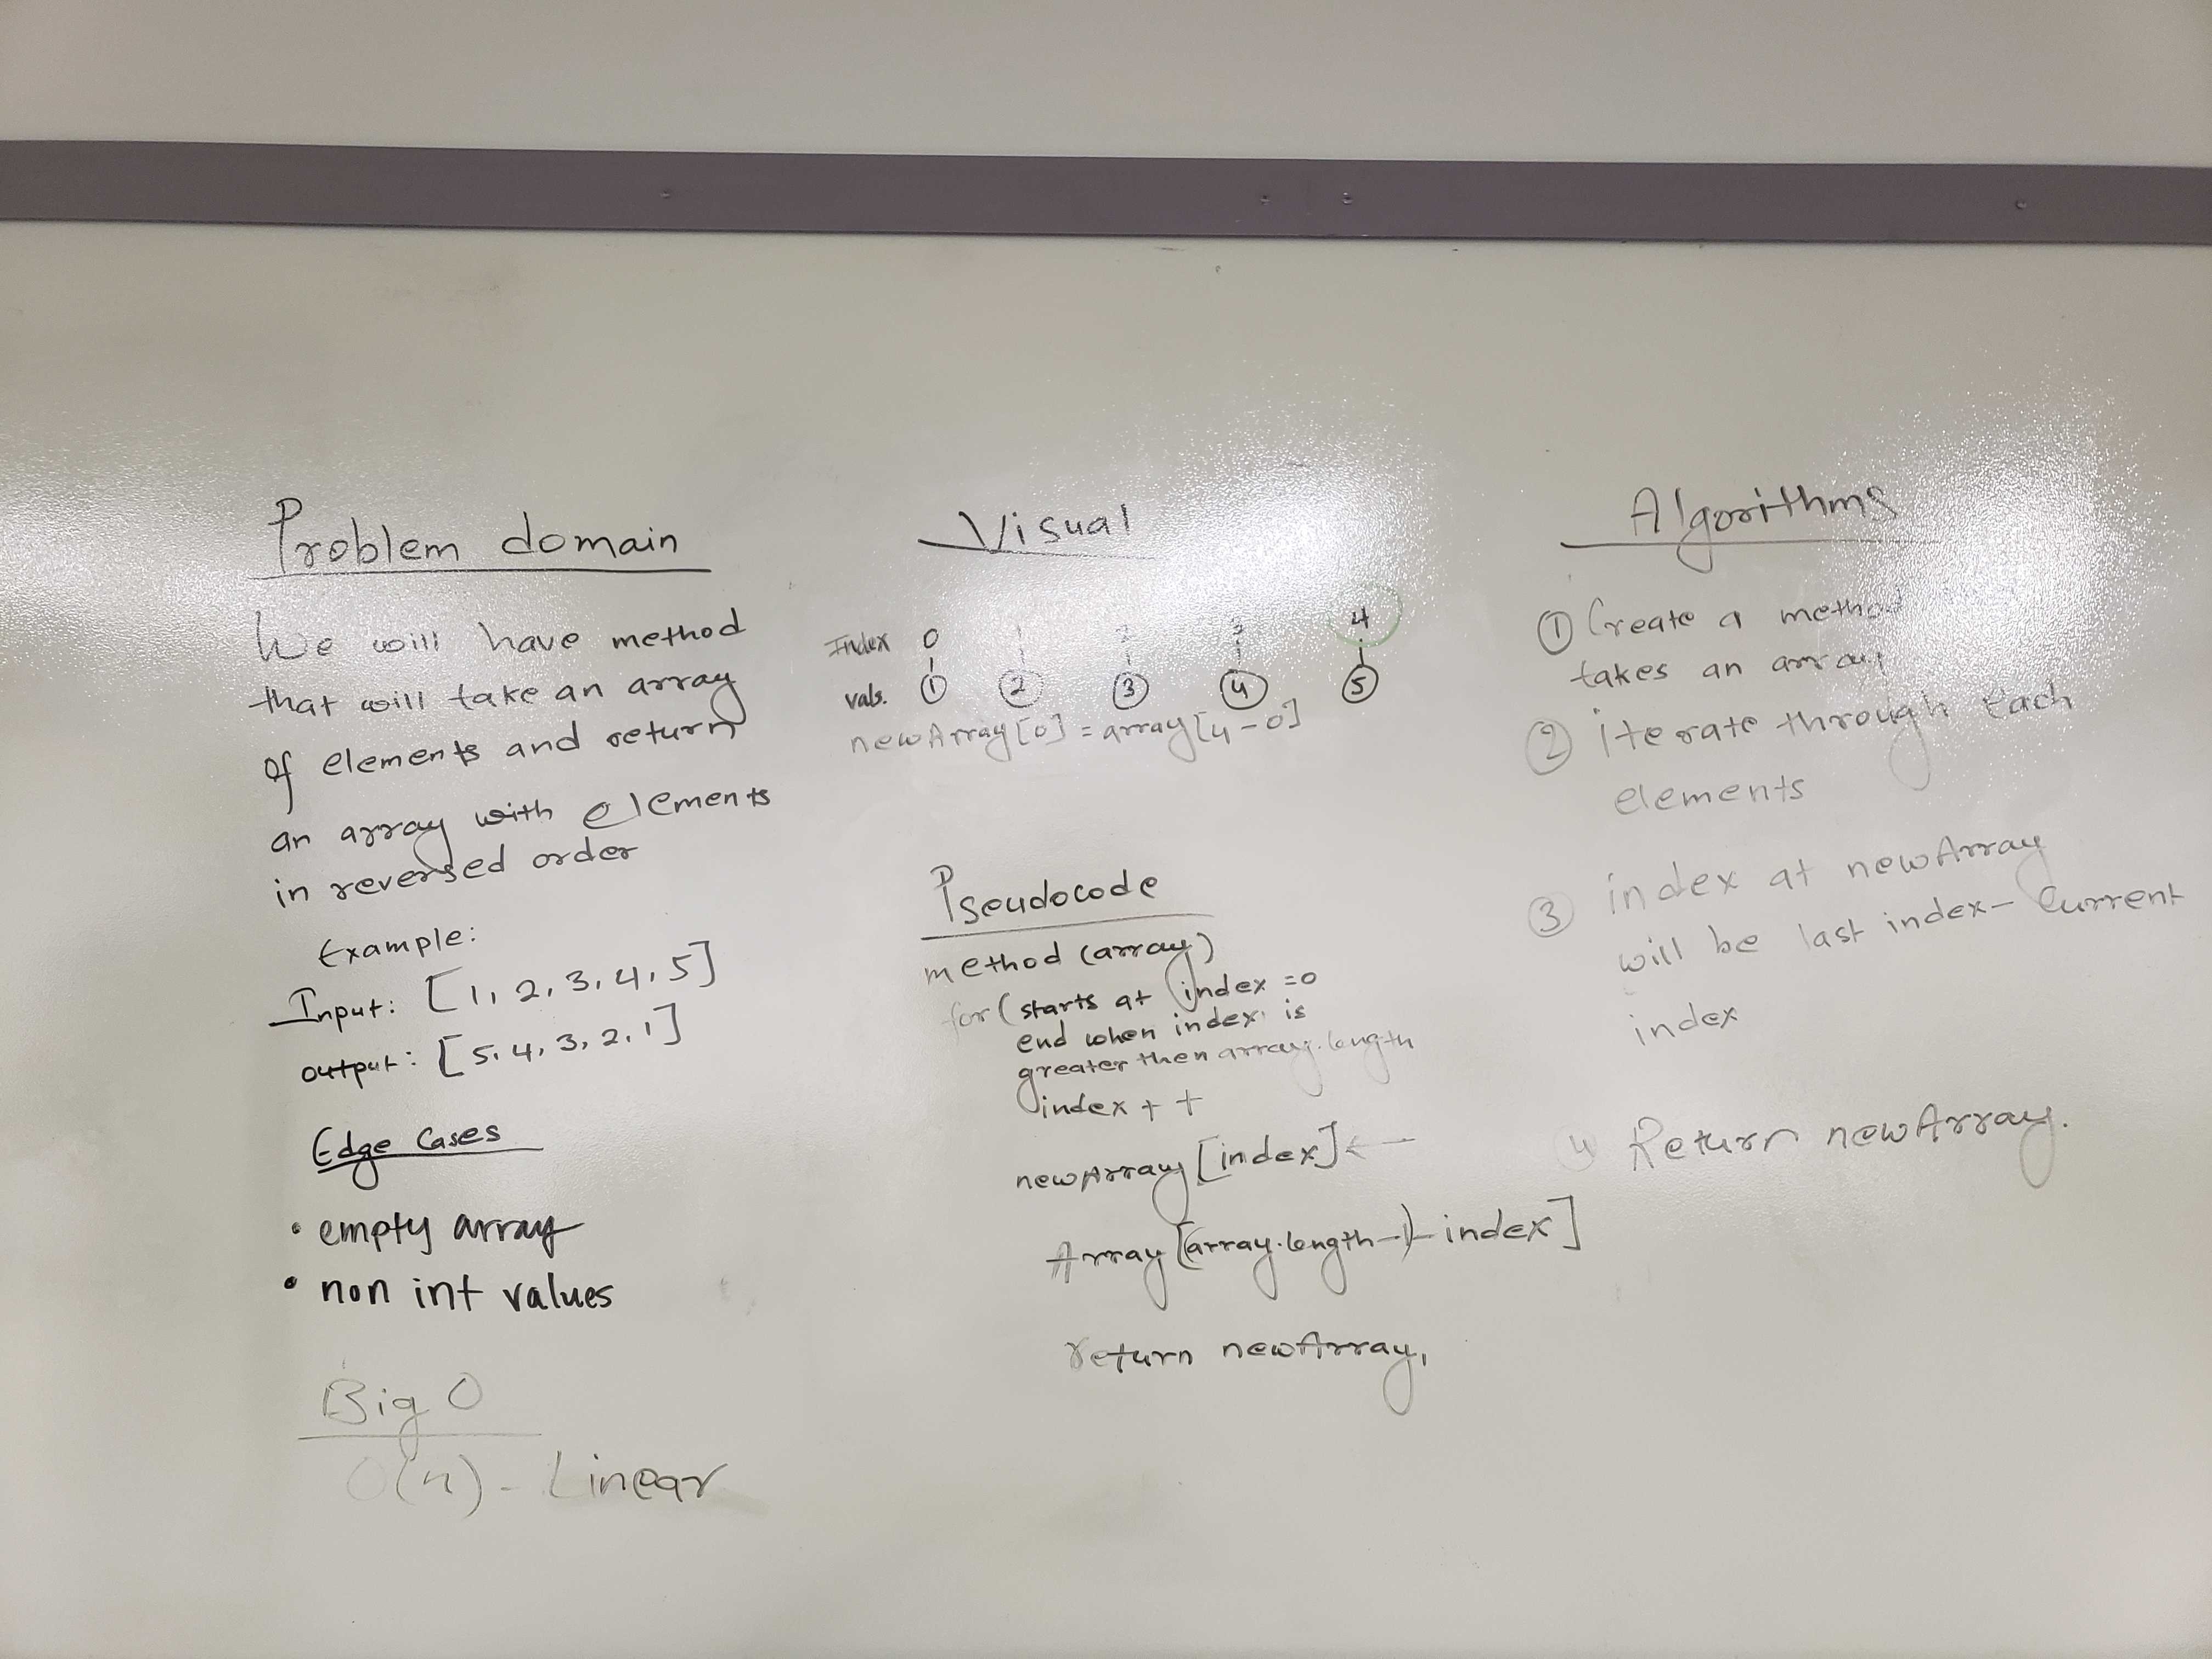 Problem domain
We will have method
that will take an array
of elements and return
an array with elements
in reversed order
Example:
Input: [1, 2, 3, 4, 5]
output: [5, 4, 3, 2, 1]
Edge Cases
• empty array
• non int values
Big O
O(n) - Linear
Visual
Index 0 1 2 3 4
vals. 1 2 3 4 5
newArray[0] = array[4-0]
Pseudocode
method (array)
for (starts at index =0
end when index is
greater then array.length
index + +
newArray [index] ←
Array [(array.length-1)-index]
return newArray,
Algorithms
① Create a method
takes an array
② iterate through Each
elements
③ index at newArray
will be last index- Current
index
4 Return newArray.